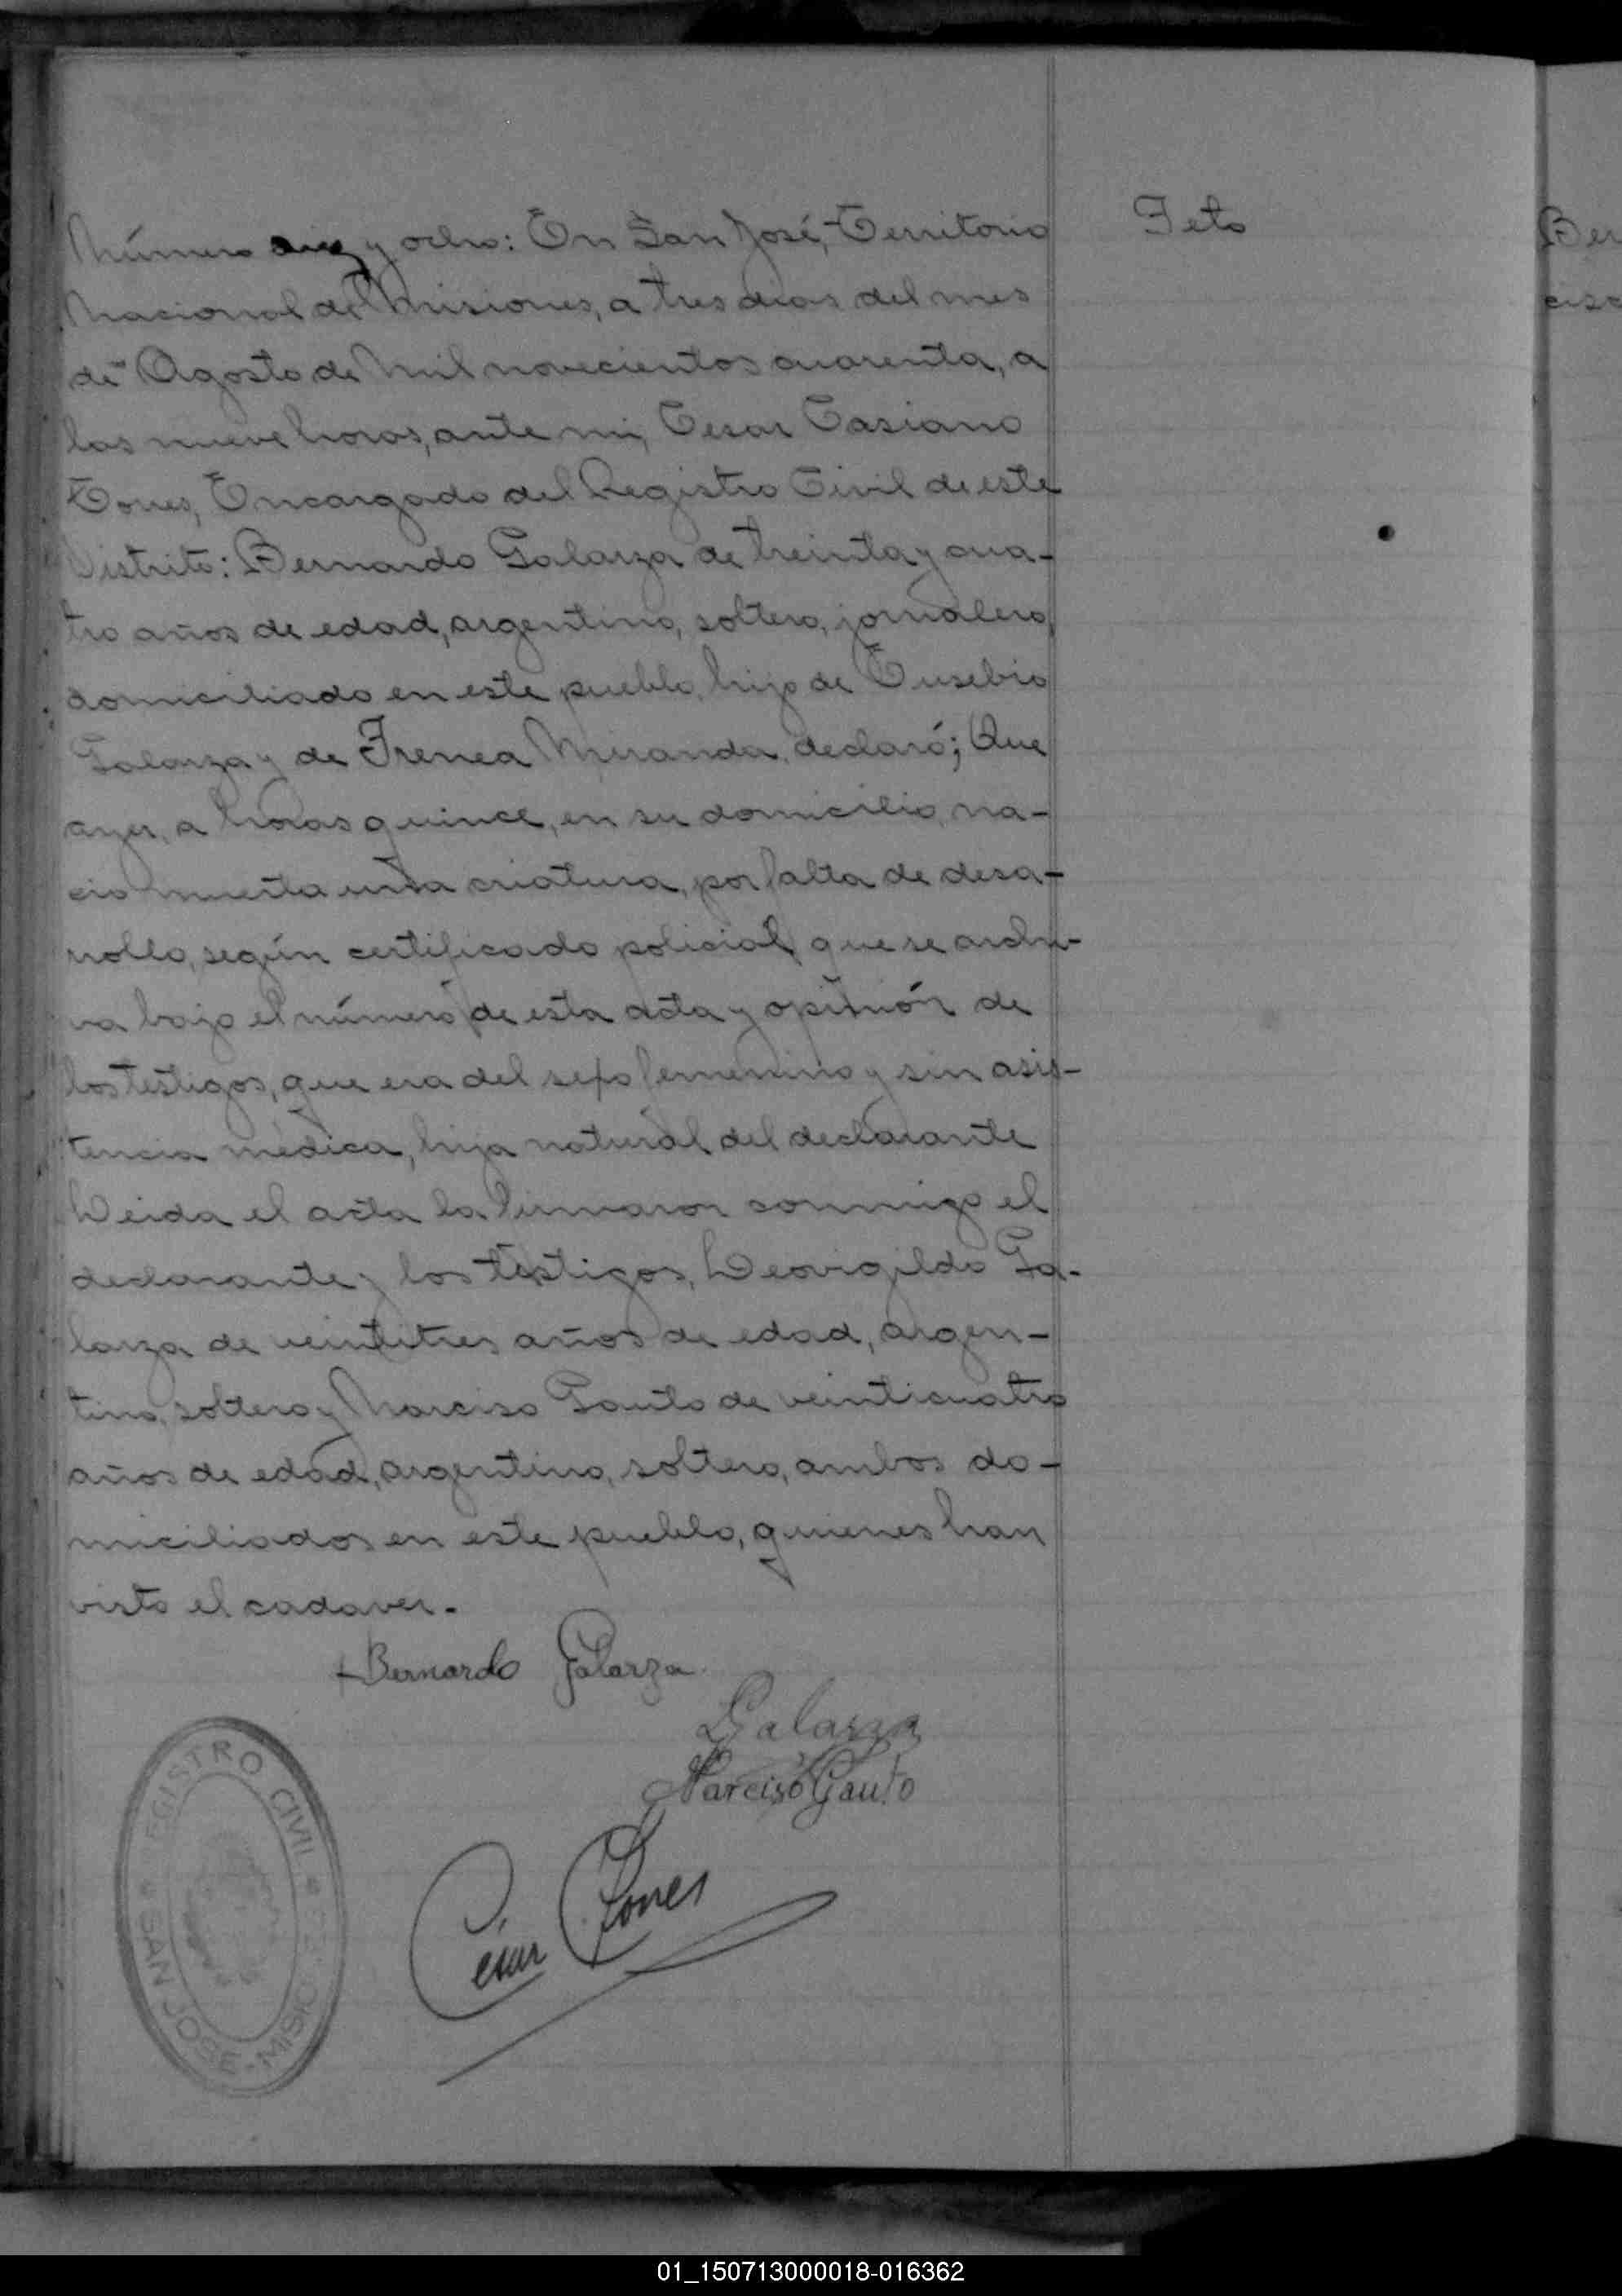 Número diez y ocho: En San José, Territorio
Nacional de Misiones, a tres dias del mes
de Agosto de mil novecientos cuarenta, a
las nueve horas, ante mi, Cesar Casiano
Torres, Encargado del Registro Civil de este
Distrito: Bernardo Galarza de treinta y cua-
tro años de edad, argentino, soltero, jornalero,
domiciliado en este pueblo, hijo de Eusebio
Galarza y de Irenea Miranda, declaró; Que
ayer, a horas quince, en su domicilio, na-
cio muerta una criatura, por falta de desa-
rrollo, según certificado policial, que se archi-
va bajo el número de esta acta y opinión de
los testigos, que era del sexo femenino y sin asis-
tencia médica, hija natural del declarante
Leida el acta la firmaron conmigo el
declarante y los testigos, Leovigildo Ga-
larza de veintitres años de edad, argen-
tino, soltero y Narciso Gauto de veinticuatro
años de edad, argentino, soltero, ambos do-
miciliados en este pueblo, quienes han
visto el cadaver.-
Feto
Ber
cisc
Bernardo Galarza
Galarza
Narciso Gauto
César Torres
REGISTRO CIVIL
SAN JOSE - MISIO
01_150713000018-016362